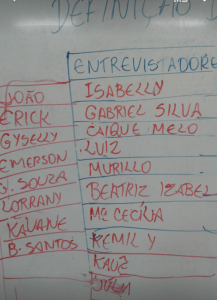 DEFINIÇÃO
ENTREVISTADORE
JOÃO
ISABELLY
ERICK
GABRIEL SILVA
GYSELLY
CAIQUE MELO
EMERSON
LUIZ
G. SOUZA
MURILLO
LORRANY
BEATRIZ IZABEL
KAUANE
Mª CECÍLIA
B. SANTOS
KEMILY
KAUZ